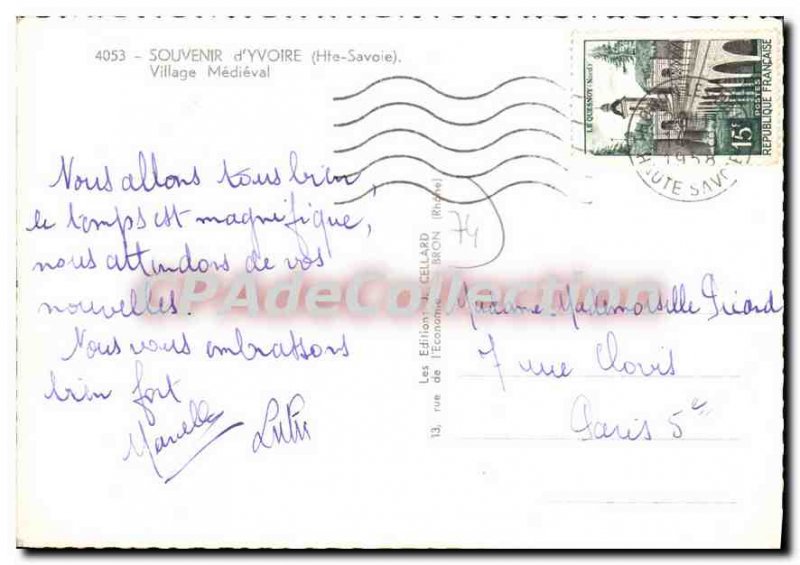 4053 - SOUVENIR d'YVOIRE (Hte-Savoie).
Village Médiéval
Nous allons tous bien
le temps est magnifique,
nous attendons de vos
nouvelles.
Nous vous embrassons
bien fort
Marcelle
Les Editions J. CELLARD
13, rue de l'Economie BRON (Rhône)
74
LE QUESNOY (Nord)
15F
POSTES
REPUBLIQUE FRANÇAISE
1958
HAUTE SAVOIE
CPAdeCollection
Madame Mademoiselle Picard
7 rue Clovis
Paris 5e